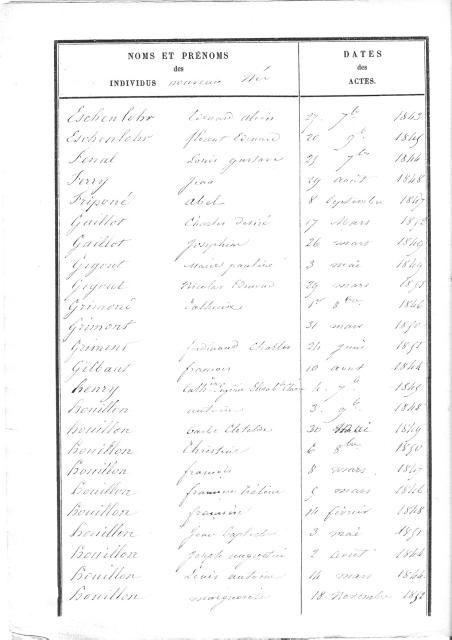 NOMS ET PRÉNOMS
des
INDIVIDUS nouveaux Nés
DATES
des
ACTES.
Eschenlohr Edouard 27 7b 1843
Eschenlohr Edouard 20 9b 1845
Fenal Louis gustave 25 7bre 1844
Ferry Jean 29 août 1848
Friponé abel 8 Septembre 1847
Gaillot Charles desiré 17 Mars 1852
Gaillot Joséphine 26 mars 1849
Gegout Marie pauline 3 mai 1849
Gegout Nicolas Edouard 29 mars 1851
Grimoné Catherine 1er 8bre 1846
Grimont 31 mars 1850
Griment ferdinand Charles 24 juin 1852
Gilbaut françois 10 août 1844
henry 4 7b 1845
houillon antoine 3 9b 1848
houillon Clotilde 30 Mai 1849
houillon Christine 6 8bre 1850
houillon françois 8 mars 1847
houillon héline 5 mars 1846
houillon françoise 14 février 1848
houillon Jean Baptiste 3 mai 1851
houillon Joseph augustin 2 août 1844
houillon Louis antoine 14 mars 1844
houillon marguerite 18 Novembre 1852